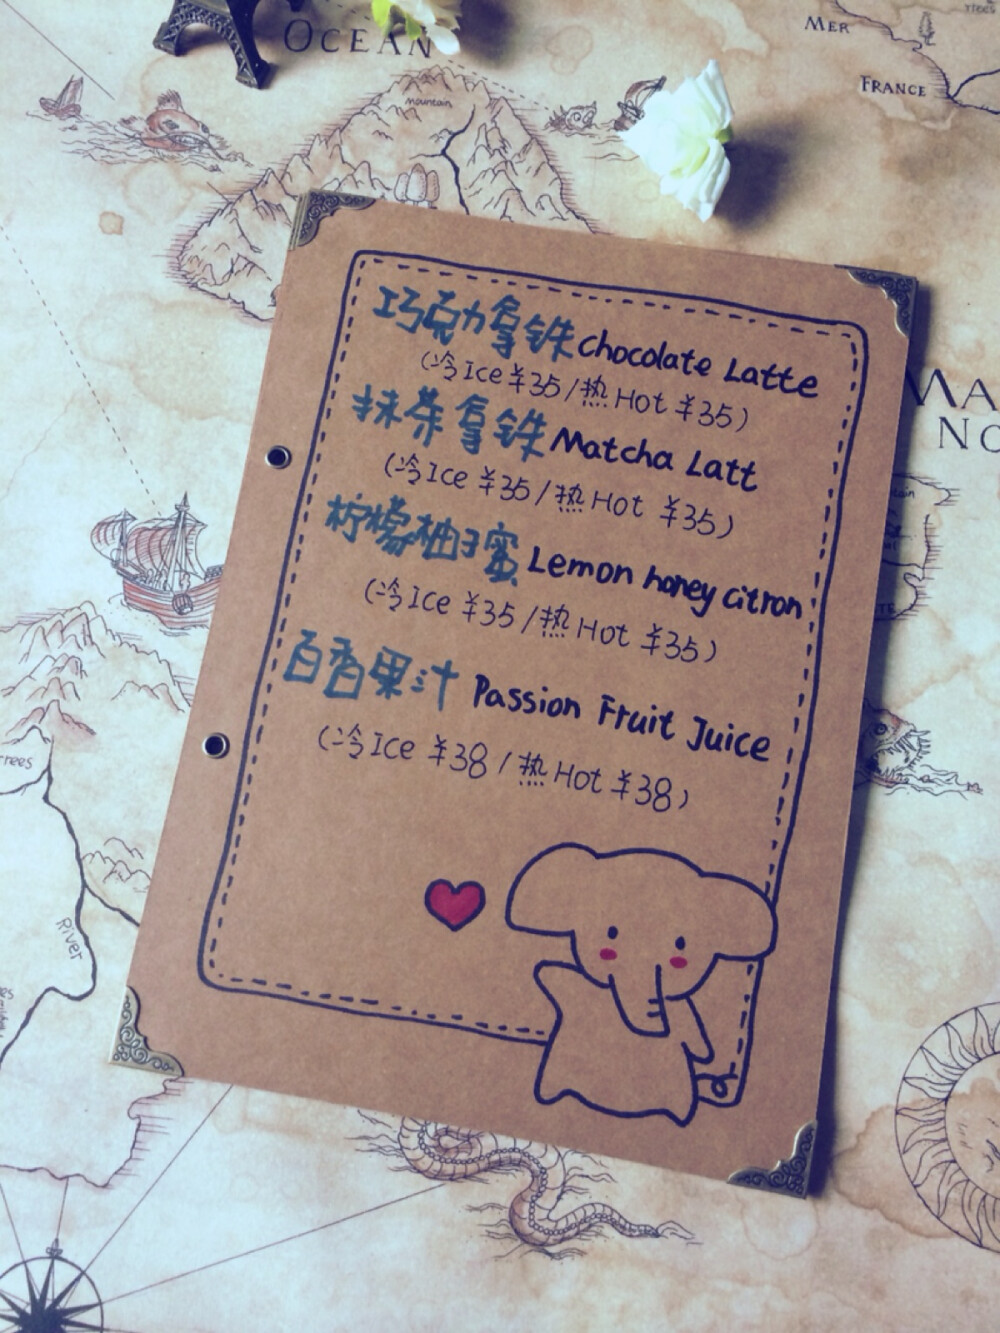 OCEAN
MER
FRANCE
mountain
巧克力拿铁 Chocolate Latte
(冷 Ice ¥35 / 热 Hot ¥35)
抹茶拿铁 Matcha Latt
(冷 Ice ¥35 / 热 Hot ¥35)
柠檬柚子蜜 Lemon honey citron
(冷 Ice ¥35 / 热 Hot ¥35)
百香果汁 Passion Fruit Juice
(冷 Ice ¥38 / 热 Hot ¥38)
River